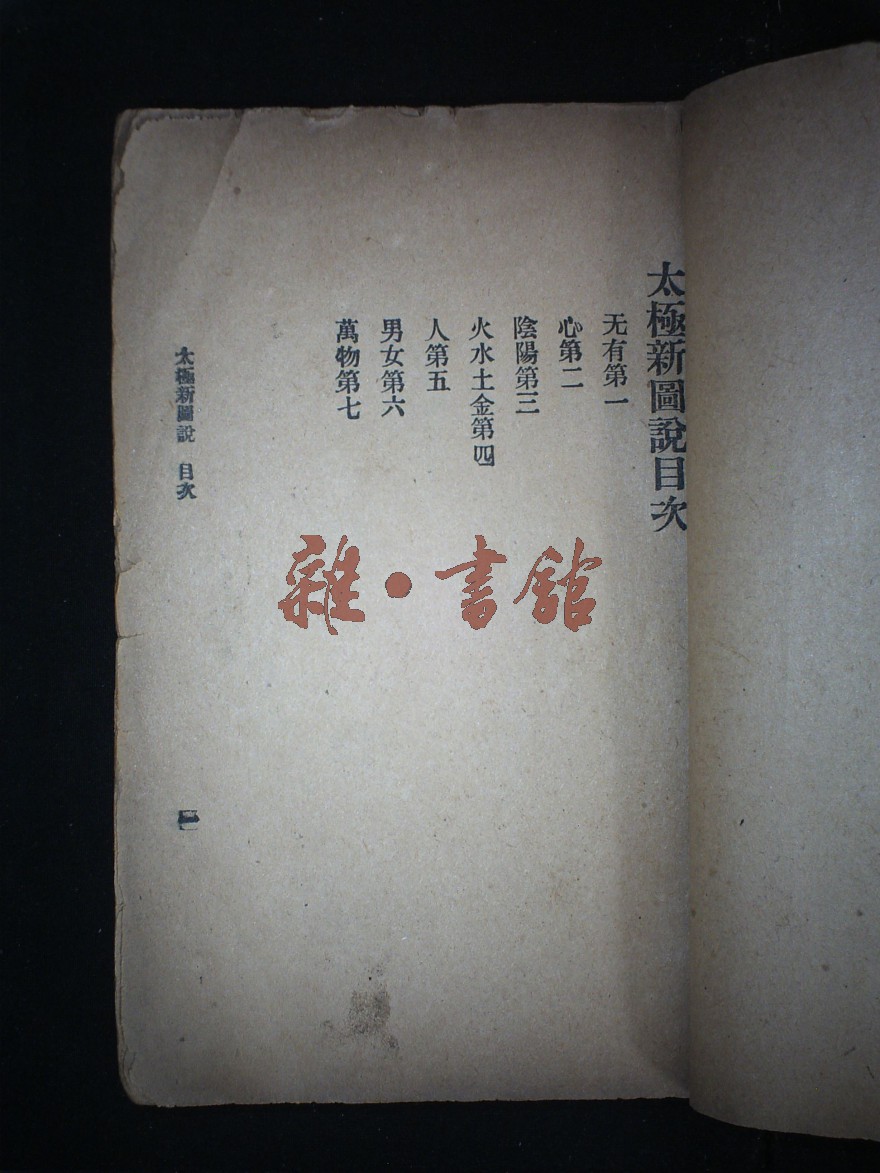 太極新圖說目次
无有第一
心第二
陰陽第三
火水土金第四
人第五
男女第六
萬物第七
太極新圖說 目次
一
雜·書館